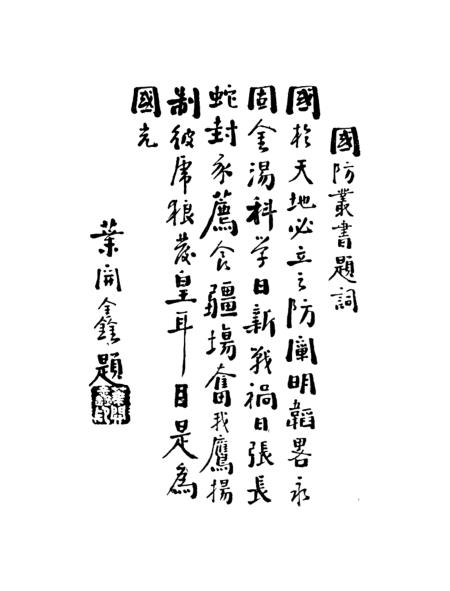 國防叢書題詞
國於天地必立之防闡明韜畧永
固金湯科学日新戰禍日張長
蛇封豕薦食疆場奮我鷹揚
制彼虎狼發皇耳目是為
國光
葉開鑫題
葉開鑫印